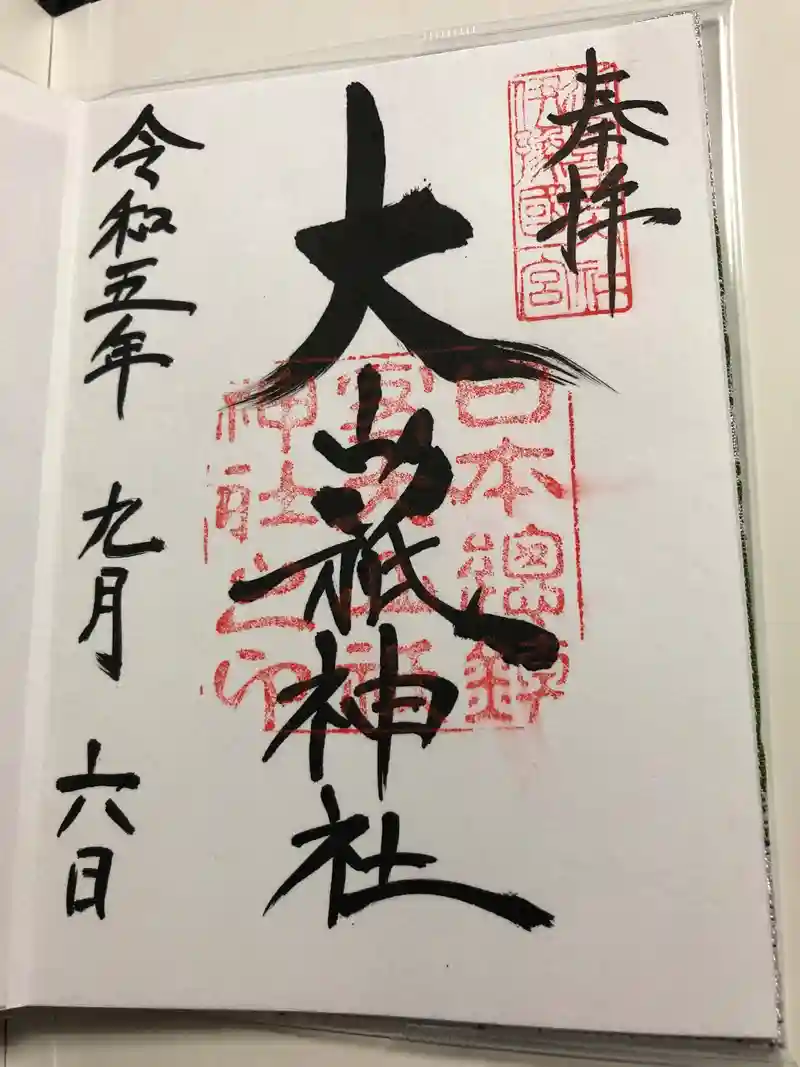 奉拝
伊豫國一宮
大山祇神社
日本總鎮
守大山祇
神社之印
令和五年 九月 六日